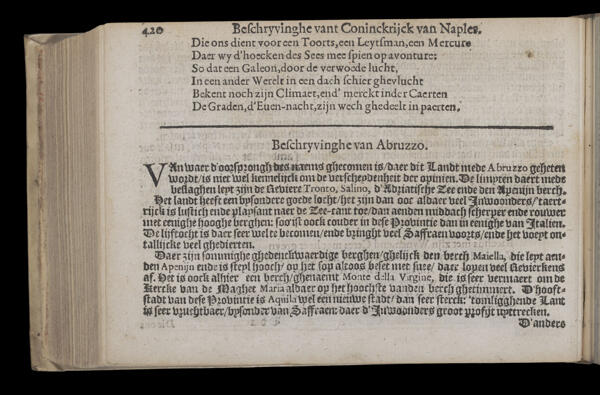 420 Beschryvinghe vant Coninckrijck van Naples.
Die ons dient voor een Toorts, een Leytsman, een Mercure
Daer wy d'hoecken des Sees mee spien op avonture:
So dat een Galeon, door de verwoede lucht,
In een ander Werelt in een dach schier ghevlucht
Bekent noch zijn Climaet, end' merckt inder Caerten
De Graden, d'Euen-nacht, zijn wech ghedeelt in paerten.
Beschryvinghe van Abruzzo.
VAn waer d'oorsprongh des naems ghecomen is/ daer dit Landt mede Abruzzo geheten
wordt/ is niet wel kennelijck om de verscheydenheit der opinien. De limpten daert mede
beslaghen leyt zijn de Reviere Tronto, Salino, d'Adriatsche Zee ende den Apenijn berch.
Het landt heeft een bysondere goede locht/ het zijn dan ooc aldaer veel Inwoonders/ taert-
rijck is lustich ende playsant naer de Zee-cant toe/ dan aenden middach scherper ende rouwer
met eenighe hooghe berghen: soo ist oock couder in dese Provintie dan in eenighe van Italien.
De lijftocht is daer seer wel te becomen/ ende bringht veel Saffraen voorts/ ende het voeyt on-
tallijcke veel ghedierten.
Daer zijn sommighe ghedenckwaerdige berghen/ ghelijck den berch Maiella, die leyt aen-
den Apenijn ende is steyl hooch/ op het sop altoos beset met snee/ daer lopen veel Revierkens
af. Het is oock alhier een berch/ ghenaemt Monte della Virgine, die is seer vermaert om de
Kercke van de Maghet Maria aldaer op het hoochste vanden berch ghetimmert. D'hooft-
stadt van dese Provintie is Aquila wel een nieuwe stadt/ dan seer sterck: 'tomligghende Lant
is seer vruchtbaer/ bysonder van Saffraen: daer d'Inwoonders groot profijt uyttrecken.
D'anders